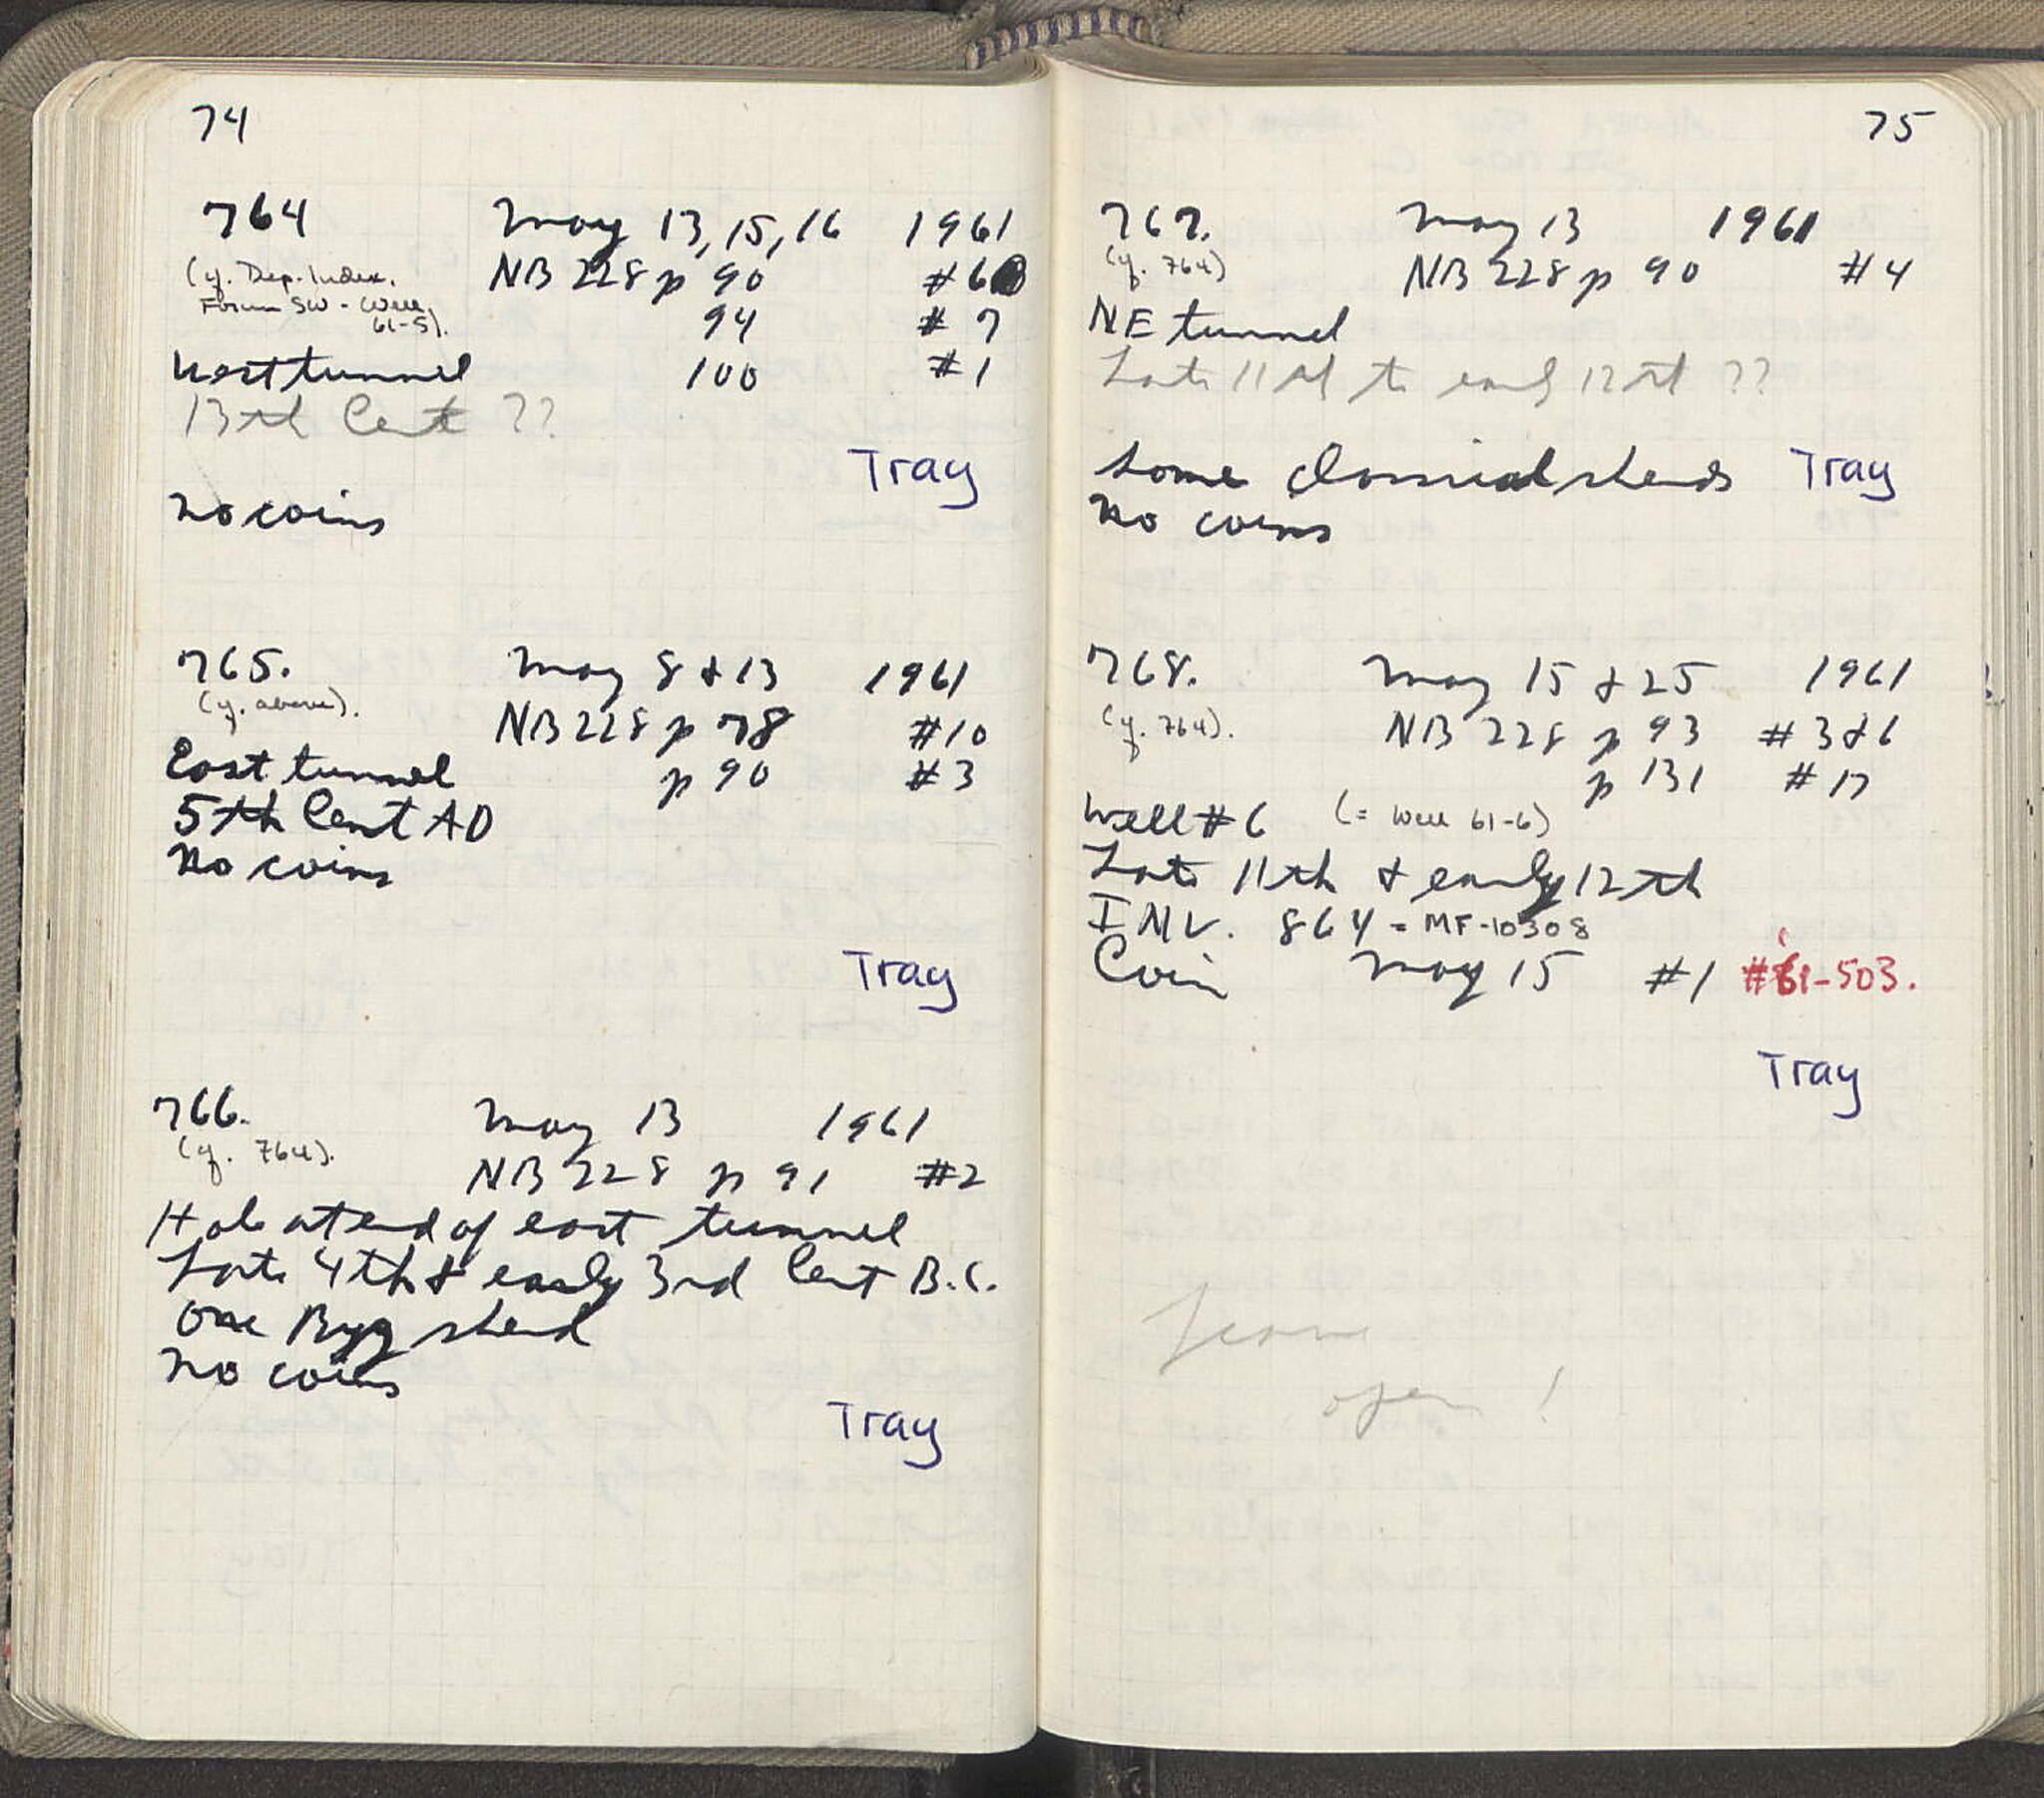 74
764 May 13, 15, 16 1961
(cf. Dep. Index. NB 228 p 90 #6
Forum SW - Well
61-5). 94 #7
West tunnel 100 #1
13th Cent ??
Tray
No coins
765. May 8 & 13 1961
(cf. above). NB 228 p 78 #10
East tunnel p 90 #3
5th Cent AD
No coins
Tray
766. May 13 1961
(cf. 764). NB 228 p 91 #2
Hole at end of east tunnel
Late 4th & early 3rd Cent B.C.
One Byz sherd
No coins
Tray
75
767. May 13 1961
(cf. 764) NB 228 p 90 #4
NE tunnel
Late 11th to early 12th ??
Some classical sherds Tray
No coins
768. May 15 & 25 1961
(cf. 764). NB 228 p 93 #3 & 6
p 131 #17
Well #6 (= Well 61-6)
Late 11th & early 12th
INV. 864 = MF-10308
Coin May 15 #1 #61-503.
Tray
Leave
open !